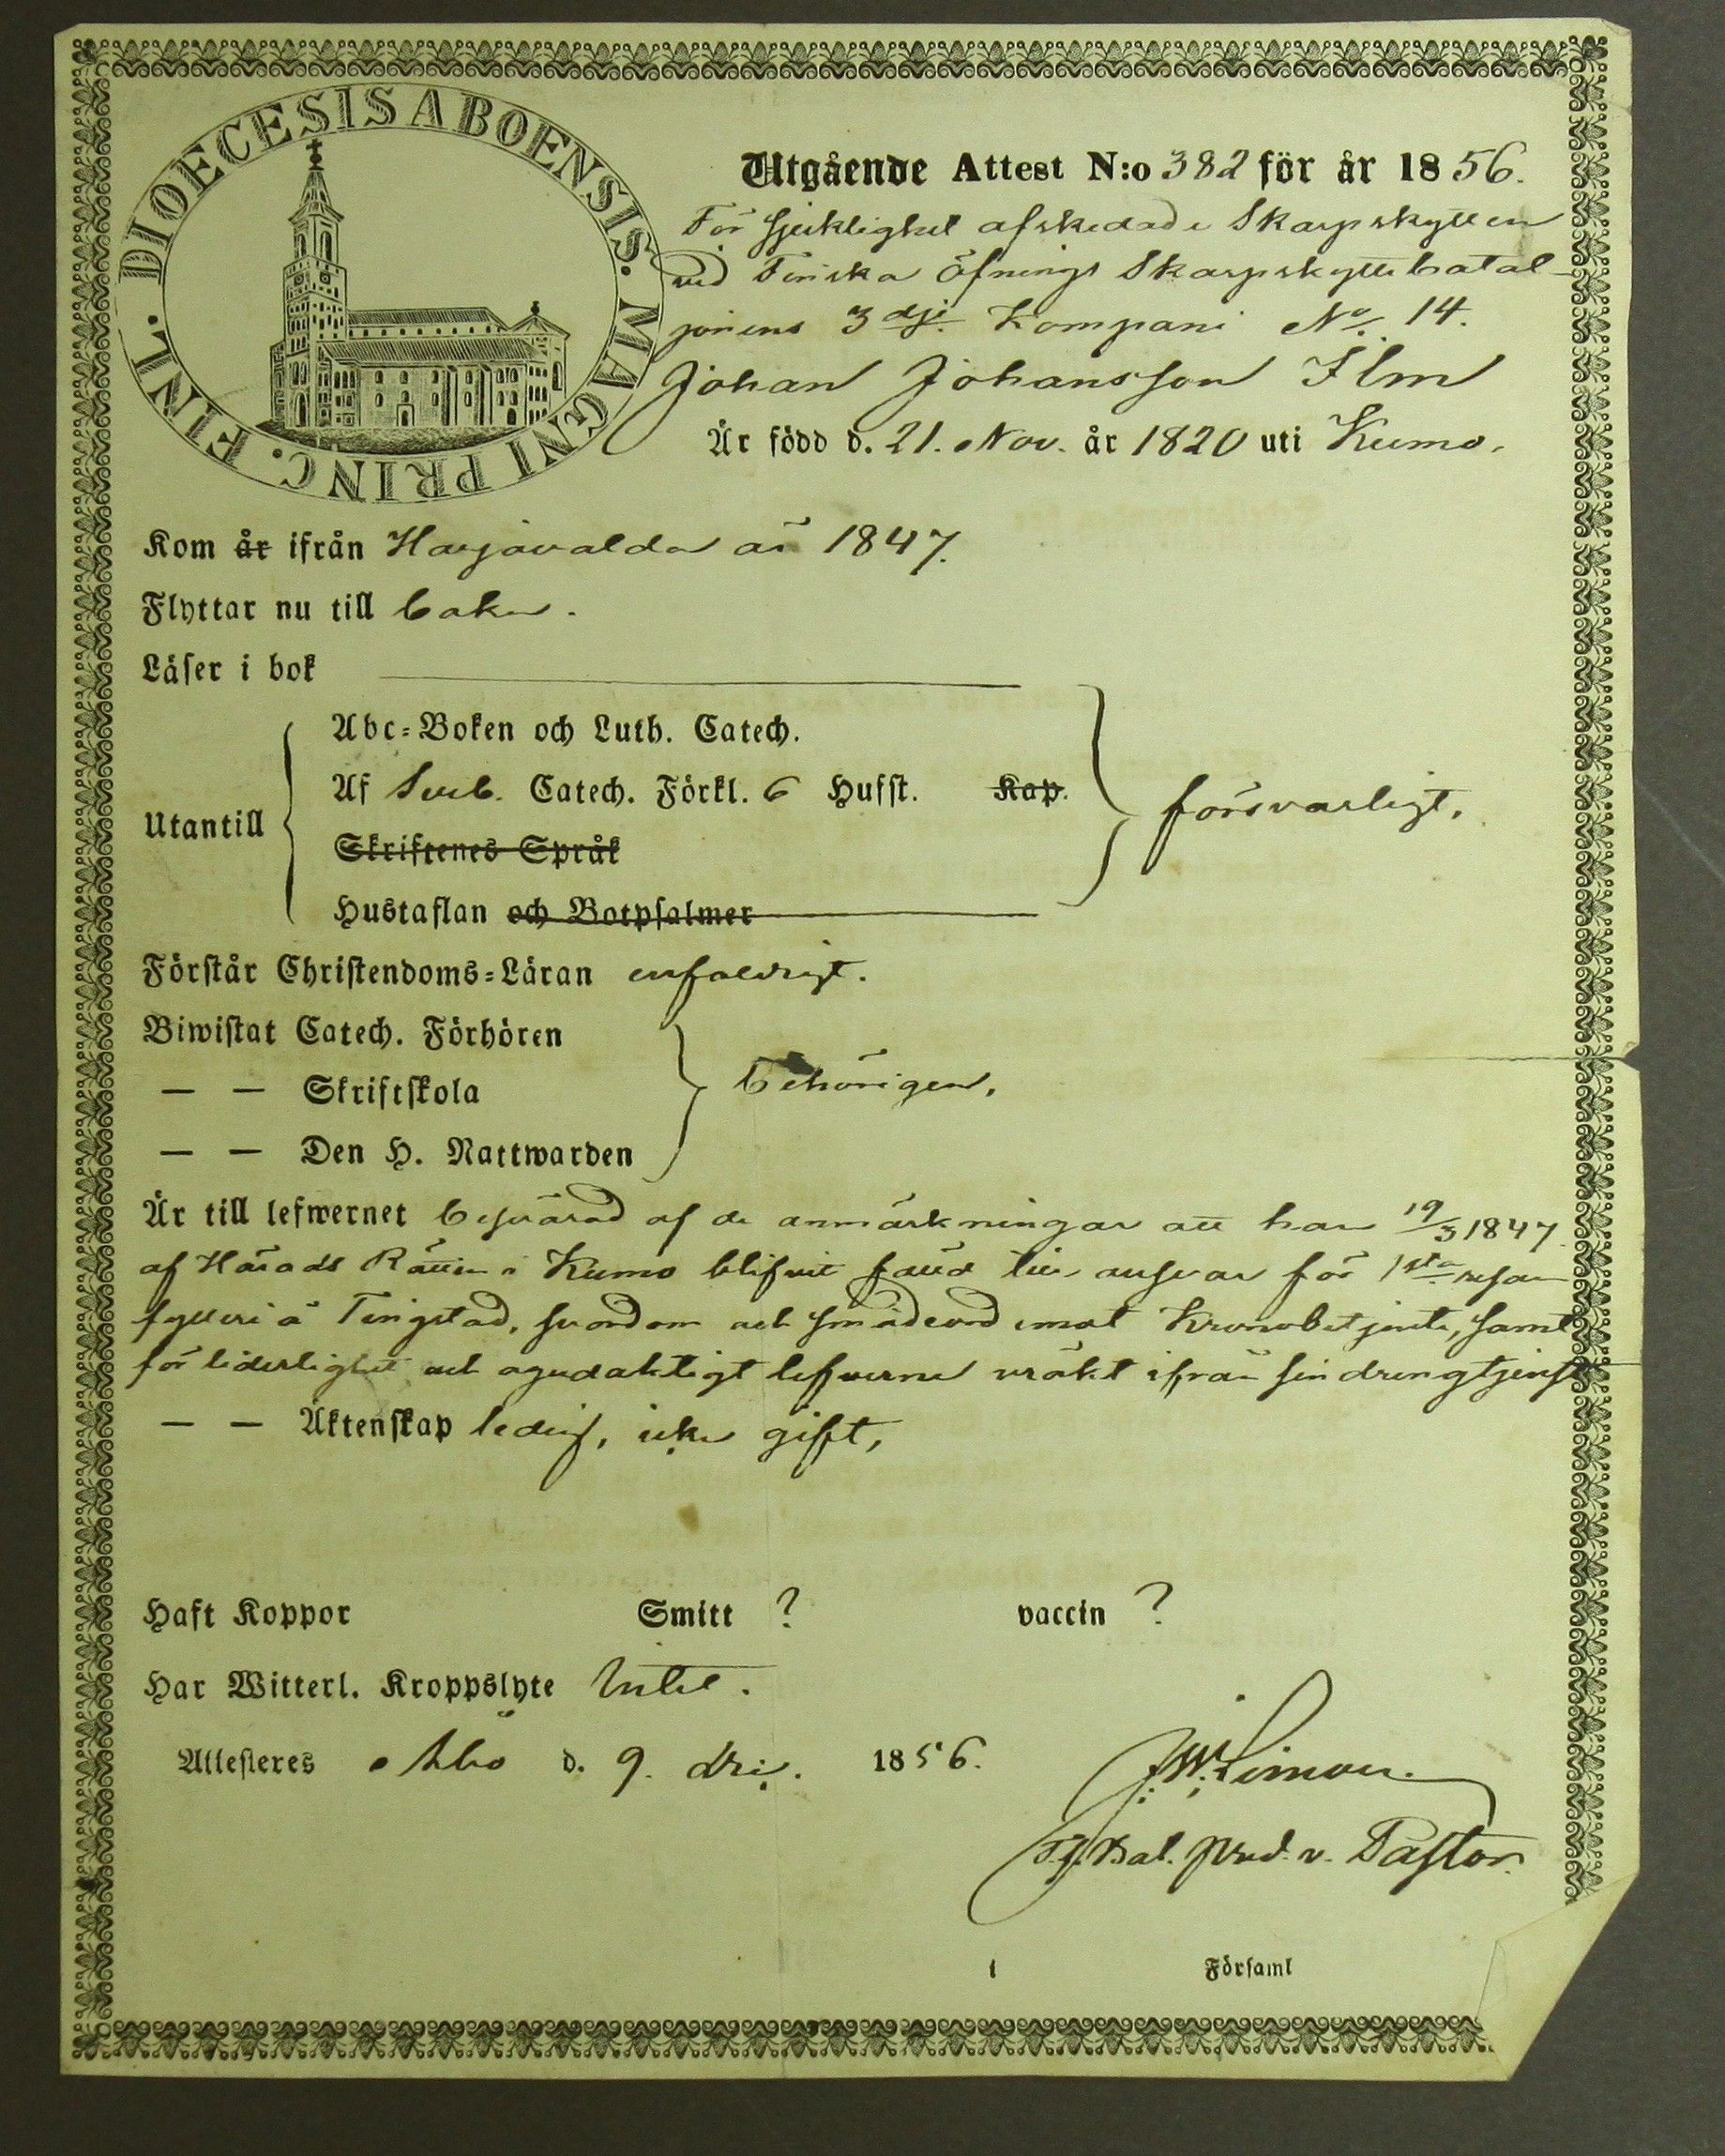 DIOECESIS ABOENSIS. MAGNI PRINC. FINL.
Utgående Attest N:o 382 för år 1856.
För sjuklighet afskedade Skarpskytten
vid Finska Öfnings Skarpskyttebatal-
jonens 3dje Kompani No 14.
Johan Johansson Ilm
Är född d. 21. Nov. år 1820 uti Kumo.
Kom år ifrån Harjavalda år 1847.
Flyttar nu till baka.
Läser i bok
Utantill
Abc-Boken och Luth. Catech.
Af Sveb. Catech. Förkl. 6 Hufst. Kap.
Skriftenes Språk
Hustaflan och Botpsalmer
försvarligt.
Förstår Christendoms-Läran enfaldigt.
Biwistat Catech. Förhören
— — Skriftskola
— — Den H. Nattwarden
behörigen.
Är till lefwernet besvärad af de anmärkningar att han 19/3 1847
af Härads Rätten i Kumo blifvit fälld till ansvar för 1sta resan
fylleri å Tingstad, svordom och smädeord emot Kronobetjente, samt
för liderlighet och ogudaktigt lefverne vräkt ifrån sin drengtjenst
— — Äktenskap ledig, icke gift,
Haft Koppor Smitt ? vaccin ?
Har Witterl. Kroppslyte Intet.
Attesteres Åbo d. 9. Dec. 1856.
J.W. Limon.
Bat. Pred. v. Pastor.
i Församl